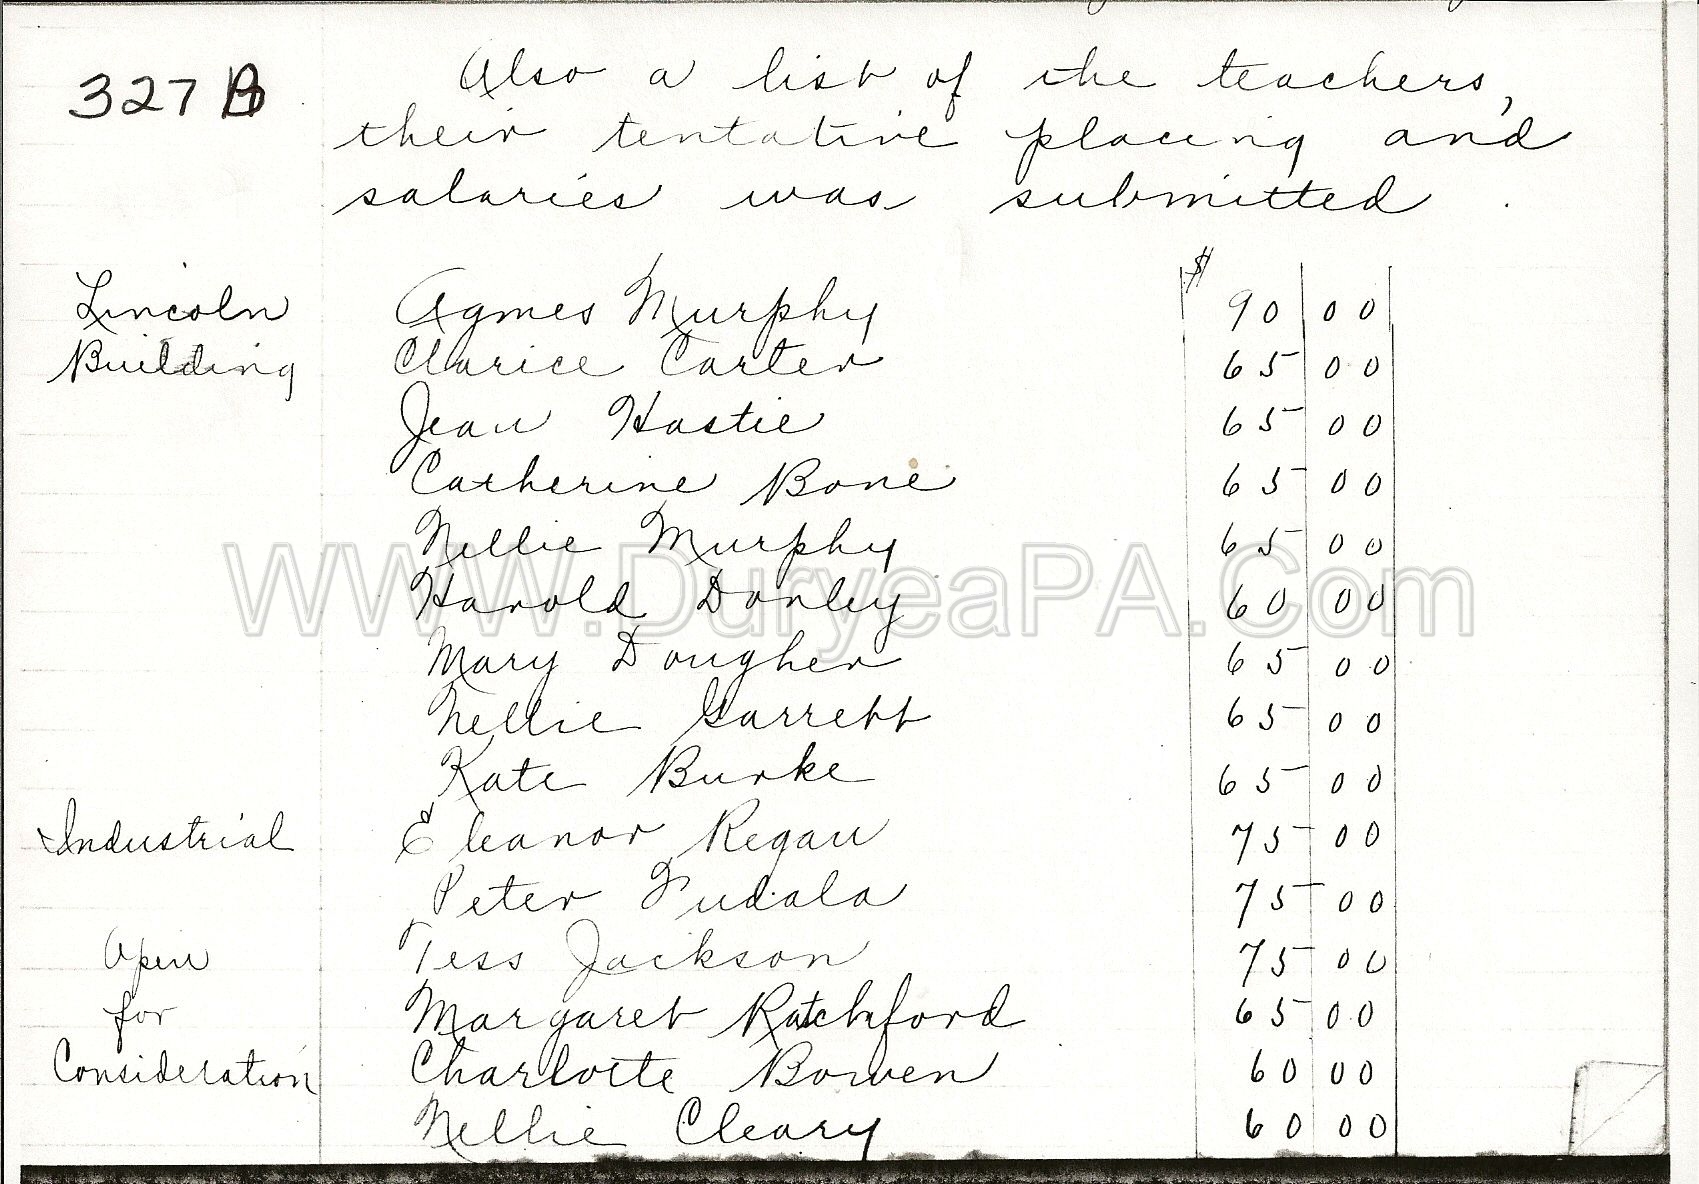 327 B Also a list of the teachers,
their tentative placing and
salaries was submitted.
$
Lincoln Agmes Murphy 90 00
Building Clarice Carter 65 00
Jean Hastie 65 00
Catherine Bone 65 00
Nellie Murphy 65 00
WWW.DuryeaPA.Com
Harold Donley 60 00
Mary Dougher 65 00
Nellie Garrett 65 00
Kate Burke 65 00
Industrial Eleanor Regan 75 00
Peter Fudala 75 00
Open Tess Jackson 75 00
for Margaret Ratchford 65 00
Consideration Charlotte Bowen 60 00
Nellie Cleary 60 00